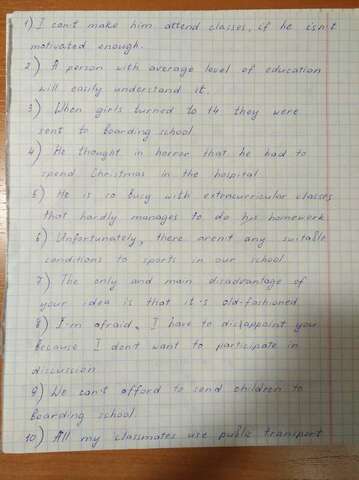 1) I can't make him attend classes, if he isn't
motivated enough.
2) A person with average level of education
will easily understand it.
3) When girls turned to 14 they were
sent to boarding school.
4) He thought in horror that he had to
spend Christmas in the hospital.
5) He is so busy with extracurricular classes
that hardly manages to do his homework.
6) Unfortunately, there aren't any suitable
conditions to sports in our school.
7) The only and main disadvantage of
your idea is that it's old-fashioned.
8) I'm afraid, I have to disappoint you
because I don't want to participate in
discussion.
9) We can't afford to send children to
boarding school.
10) All my classmates use public transport